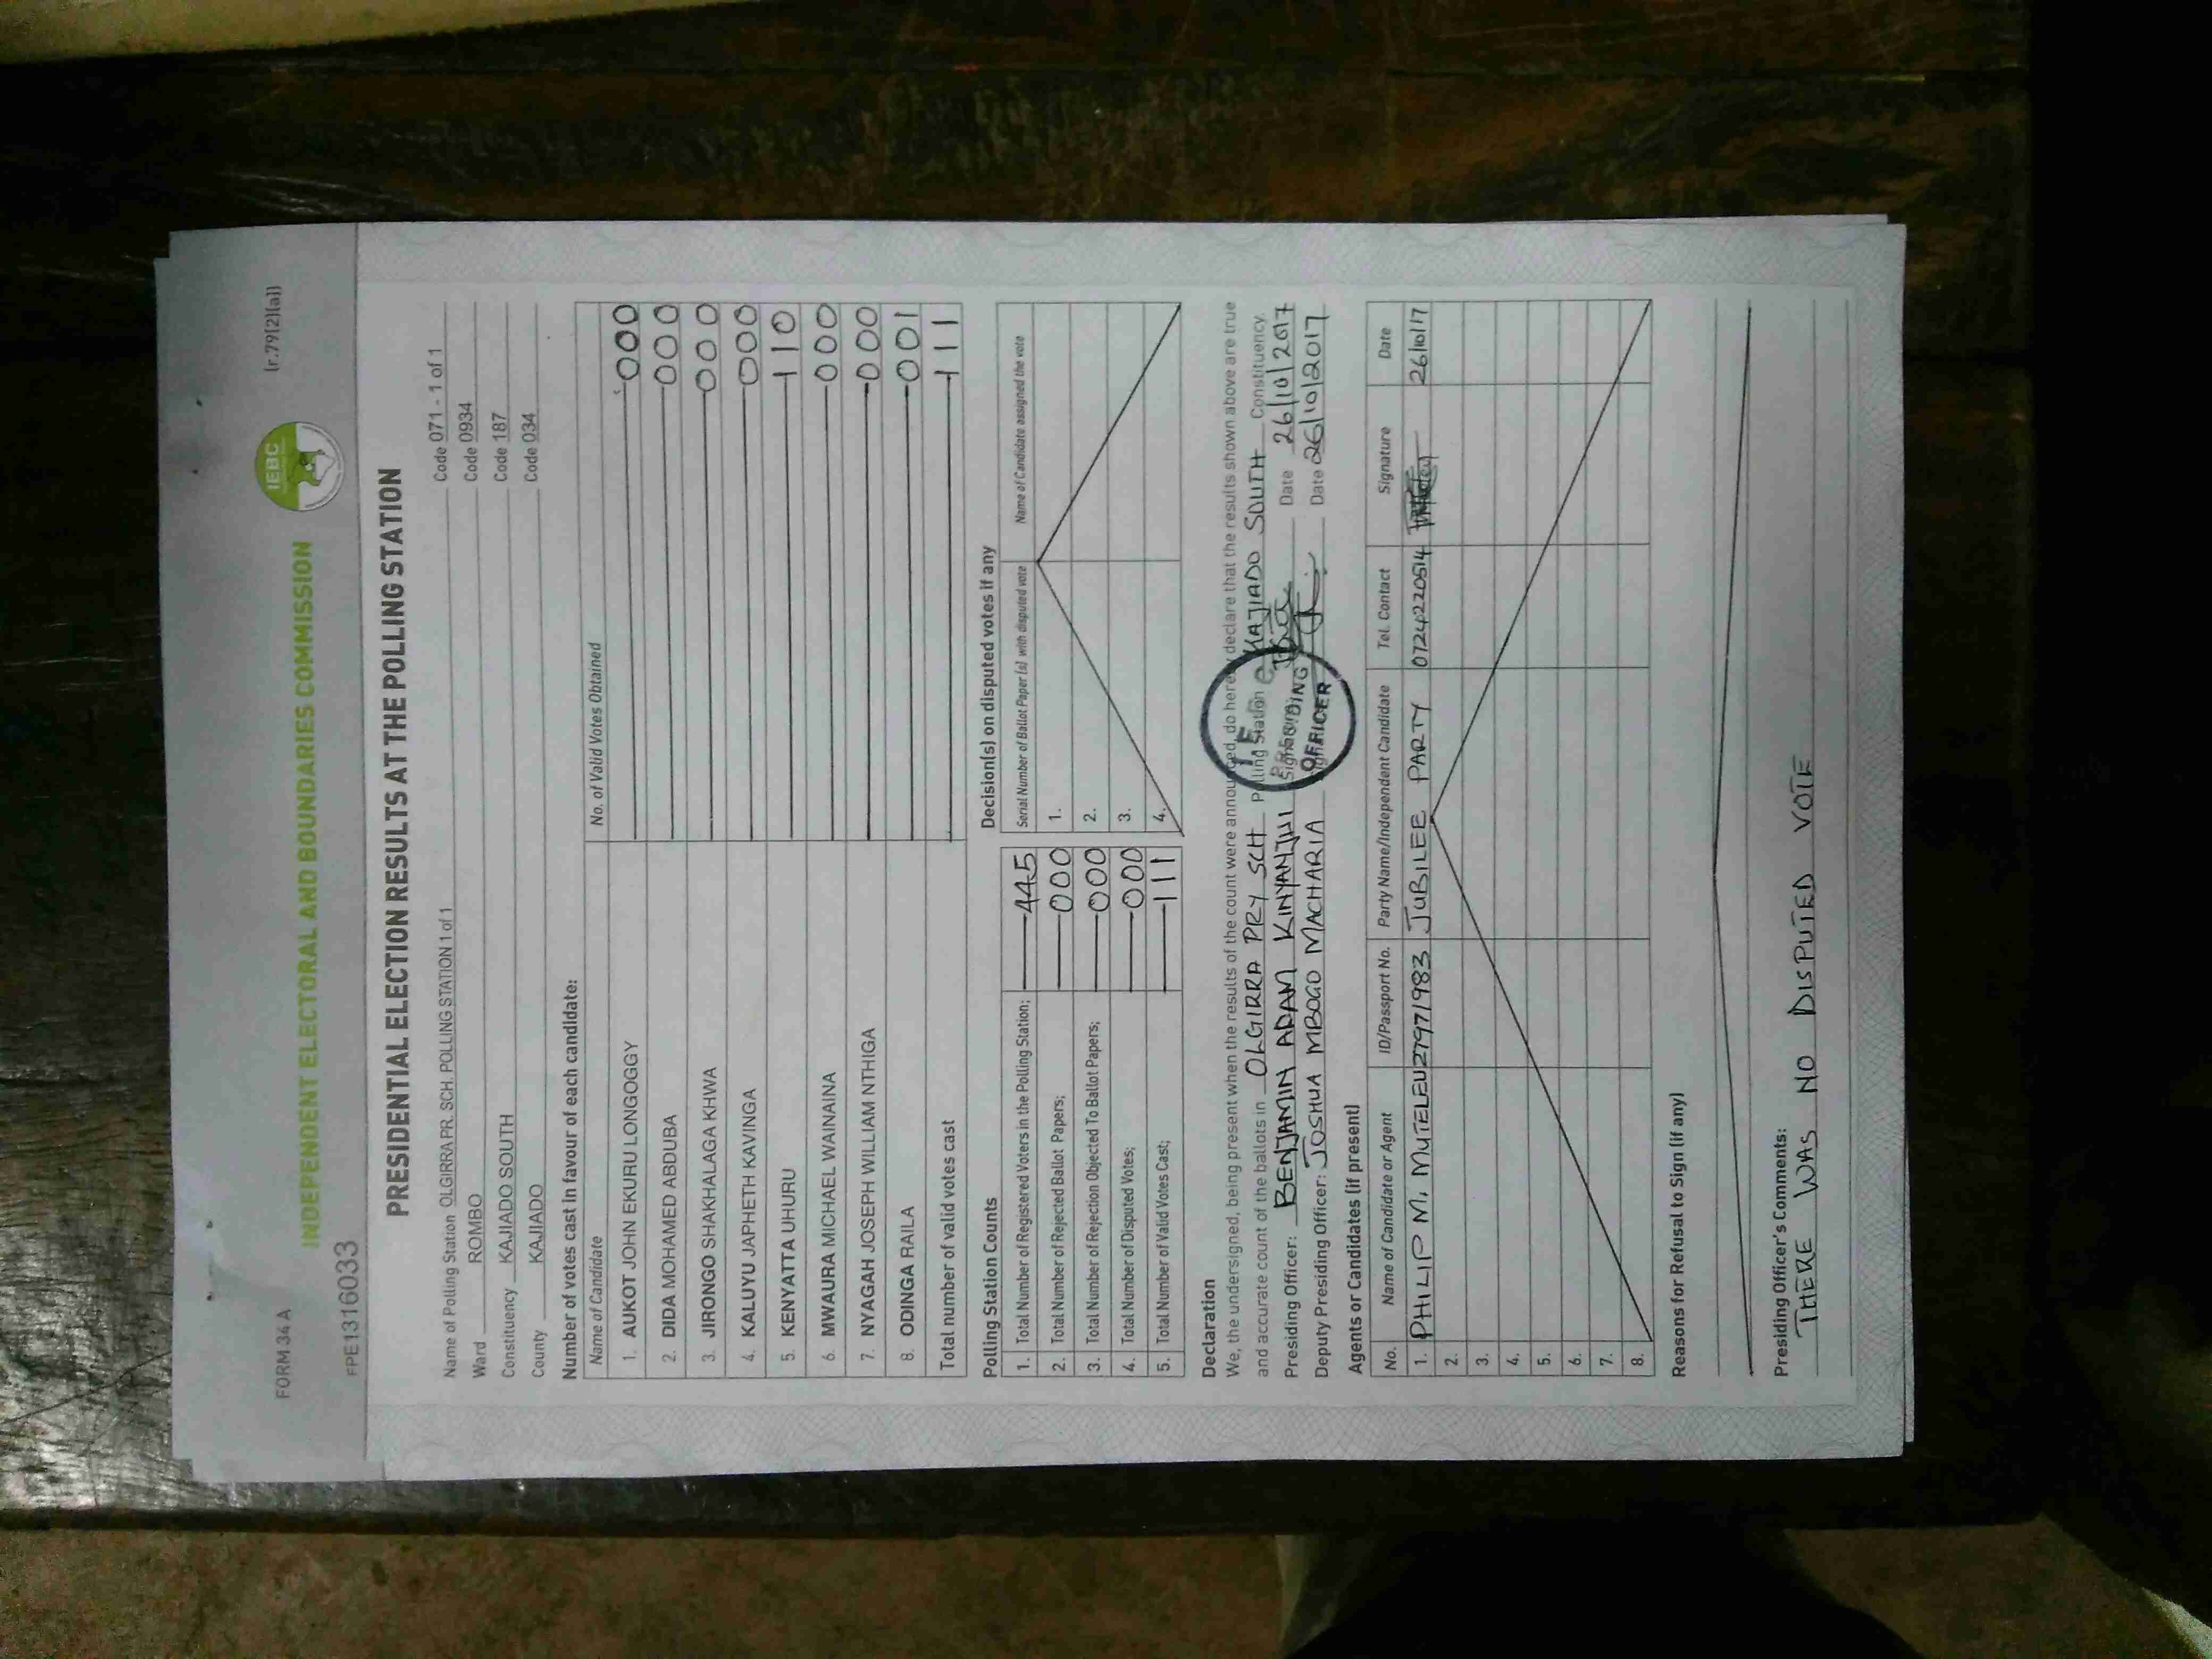 FORM 34 A
(r.79(2)(a))
IEBC
INDEPENDENT ELECTORAL AND BOUNDARIES COMMISSION
FPE1316033
PRESIDENTIAL ELECTION RESULTS AT THE POLLING STATION
Name of Polling Station OLGIRRA PR. SCH. POLLING STATION 1 of 1 Code 071 - 1 of 1
Ward ROMBO Code 0934
Constituency KAJIADO SOUTH Code 187
County KAJIADO Code 034
Number of votes cast in favour of each candidate:
Name of Candidate No. of Valid Votes Obtained
1. AUKOT JOHN EKURU LONGOGGY 000
2. DIDA MOHAMED ABDUBA 000
3. JIRONGO SHAKHALAGA KHWA 000
4. KALUYU JAPHETH KAVINGA 000
5. KENYATTA UHURU 110
6. MWAURA MICHAEL WAINAINA 000
7. NYAGAH JOSEPH WILLIAM NTHIGA 000
8. ODINGA RAILA 001
Total number of valid votes cast 111
Polling Station Counts
1. Total Number of Registered Voters in the Polling Station; 445
2. Total Number of Rejected Ballot Papers; 000
3. Total Number of Rejection Objected To Ballot Papers; 000
4. Total Number of Disputed Votes; 000
5. Total Number of Valid Votes Cast; 111
Decision(s) on disputed votes if any
Serial Number of Ballot Paper (s) with disputed vote Name of Candidate assigned the vote
1.
2.
3.
4.
Declaration
We, the undersigned, being present when the results of the count were announced, do hereby declare that the results shown above are true
and accurate count of the ballots in OLGIRRA PRY SCH Polling Station KAJIADO SOUTH Constituency.
Presiding Officer: BENJAMIN ADAN KINYANJUI Signature Date 26/10/2017
Deputy Presiding Officer: JOSHUA MBOGO MACHARIA Signature Date 26/10/2017
PRESIDING
OFFICER
Agents or Candidates (if present)
No. Name of Candidate or Agent ID/Passport No. Party Name/Independent Candidate Tel. Contact Signature Date
1. PHILIP M. MUTELEU 27971983 JUBILEE PARTY 0724220514 26/10/17
2.
3.
4.
5.
6.
7.
8.
Reasons for Refusal to Sign (if any)
Presiding Officer's Comments:
THERE WAS NO DISPUTED VOTE